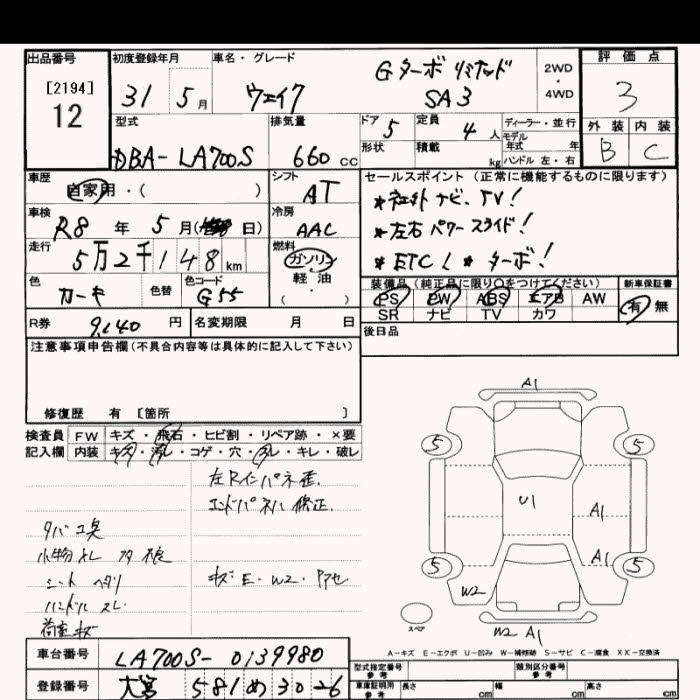 出品番号
[2194]
12
初度登録年月
31 5月
車名・グレード
ウェイク
Gターボ リミテッド
SA3
2WD
・
4WD
評価点
3
外装 内装
B C
型式
DBA-LA700S
排気量
660cc
ドア 5
定員 4人
形状
積載 kg
ディーラー・並行
モデル
年式 年
ハンドル 左・右
車歴
自家用・( )
シフト
AT
車検
R8年 5月( 日)
冷房
AAC
走行
5万2千148km
燃料
ガソリン
軽油
( ・ )
色
カーキ
色替
色コード
G55
R券 9,140円
名変期限 月 日
セールスポイント(正常に機能するものに限ります)
*社外ナビ、TV!
*左右パワースライド!
*ETC! *ターボ!
装備品(純正品に限り○をつけてください)
PS PW ABS エアB AW
SR ナビ TV カワ
新車保証書
有 無
後日品
注意事項申告欄(不具合内容等は具体的に記入して下さい)
修復歴 有 [箇所 ]
検査員
記入欄
FW キズ・飛石・ヒビ割・リペア跡・×要
内装 キズ・汚レ・コゲ・穴・スレ・キレ・破レ
左Rインパネ歪
エンドパネル修正
タバコ臭
小物入レ
シート ヘタリ
ハンドル スレ
荷室キズ
キズ・E・W2・
A1
5
5
U1
A1
A1
5
5
W2
W2 A1
スペア
A-キズ E-エクボ U-凹み W-補修跡 S-サビ C-腐食 XX-交換済
車台番号 LA700S-0139980
登録番号 大宮 581 め 30-26
型式指定番号
参考
類別区分番号
参考
車庫証明用
参考
長さ cm 幅 cm 高さ cm